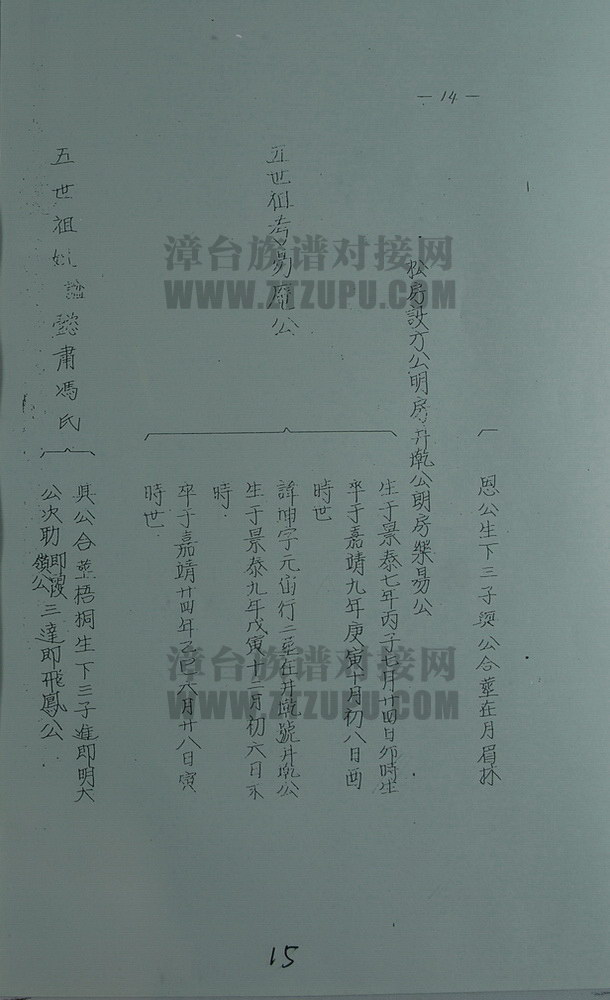 — 14 —
恩公生下三子與公合塟在月眉林
松房設方公明房丹乾公明房樂易公
生于景泰七年丙子七月廿四日卯時生
卒于嘉靖九年庚寅十月初八日酉
時世
五世祖考易庵公
諱坤字元 行三塟在丹乾號丹乾公
生于景泰九年戊寅十二月初六日
時
卒于嘉靖廿四年乙巳六月廿八日寅
時世
五世祖妣謚懿肅馮氏
與公合塟梧桐生下三子進即明大
公次助即 嶺公三達即飛鳳公
15
漳台族谱对接网
WWW.ZTZUPU.COM
漳台族谱对接网
WWW.ZTZUPU.COM